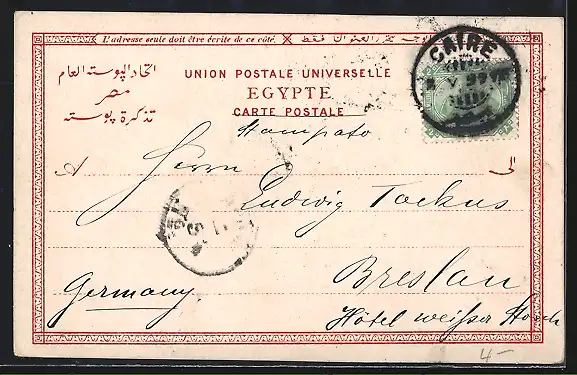 L'adresse seule doit être écrite de ce côté.
فقط
CAIRE
اتحاد البوستة العام
UNION POSTALE UNIVERSELLE
مصر
EGYPTE
تذكرة بوستة
CARTE POSTALE
Stampato
A
Herrn
الى
Ludwig Tockus
Breslau
Germany.
Hôtel weißer Storch
4-